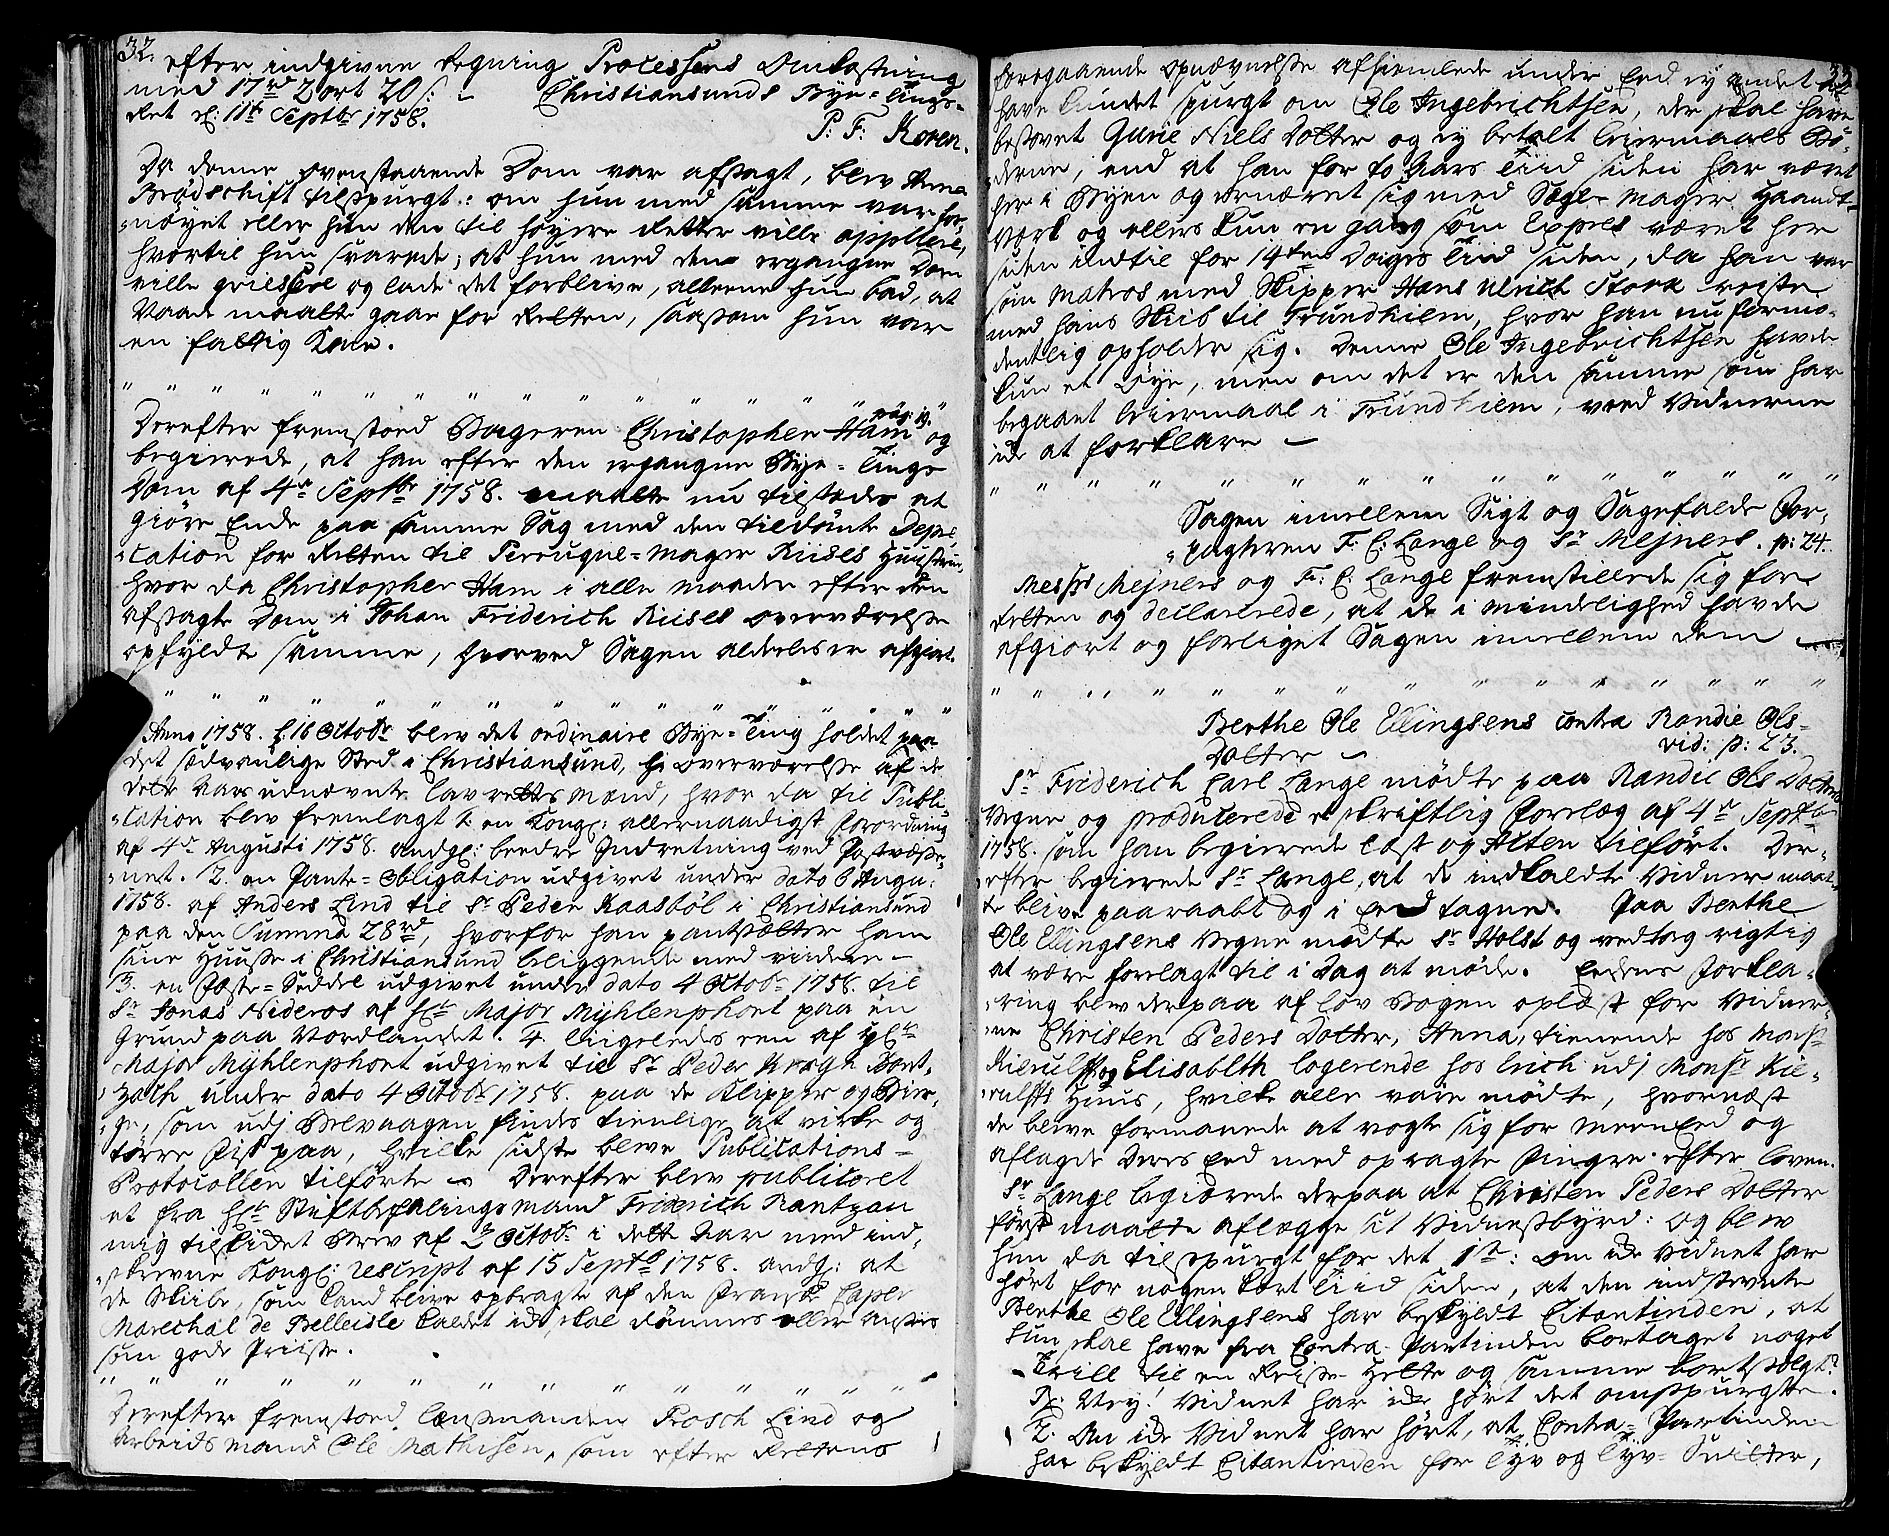 32.
efter indgivne Regning Processens Omkostning
med 17 rd 2 ort 20 s: - Christiansunds Bye-Tings-
Ret d: 11te Septbr 1758.
P: F: Koren.
Da denne ovenstaaende Dom var afsagt, blev Anna
Brodschift tilspurgt: om hun med samme var for-
nøyet eller hun den til høyere Retter ville appellere,
hvortil hun svarede; at hun med den ergangne Dom
ville och lade det forblive, alleene hun bad, at
Naade maatte gaae for Retten, saasom hun var
en fattig Kone.
Derefter fremstoed Bageren Christopher Ham pag: 19. og
begierede, at han efter den ergangne Bye-Tings
Dom af 4de Septbr 1758. maatte nu tilstædes at
giøre Ende paa samme Sag med den tildømte Depre-
cation for Retten til Perruqve-Mager Riises Huustrue,
hvor da Christopher Ham i alle maader efter den
afsagte Dom i Johan Friderich Riises overværelse
opfyldte samme, hvorved Sagen aldeeles er afgiort.
Anno 1758. d 16 Octobr blev det ordinaire Bye-Ting holdet paa
det sædvanlige Sted i Christiansund, i overværelse af de
dette Aars udnævnte Lavrettesmænd, hvor da til Publi-
cation blev fremlagt 1. en Kongl: allernaadigst Forordning
af 4de Augusti 1758. andg: beedre Indretning ved Postvæse-
net. 2. en Pante-Obligation udgivet under dato 6 Augu:
1758. af Anders Lind til Sr Peder Kaasbøl i Christiansund
paa den Summa 28 rd, hvorfor han pantsætter ham
sine Huuse i Christiansund beliggende med videre -
3. en Fæste-Seddel udgivet under dato 4 Octobr 1758. til
Sr Jonas Nideros af Hr Major Mÿhlenphort paa en
Grund paa Nordlandet. 4. ligeledes een af Hr
Major Mÿhlenphort udgivet til Sr Peder Kragh
under dato 4 Octobr 1758. paa de Klipper og Bier-
ge, som udj findes tienlige at virke og
tørre Fisk paa, hvilke sidste bleve Publications-
Protocollen tilførte - Derefter blev publiceret
et fra Hr Stiftbefalingsmand Friderich Rantzau
mig tilskicket Brev af 2 Octobr i dette Aar med ind-
skrevne Kongl: rescript af 15 Septbr 1758. andg: at
de Skibe, som kand blive opbragte af den Fransk Caper
Marechal de Belleisle kaldet icke skal dømmes eller ansees
som gode Priiser.
Derefter fremstoed Lænsmanden Rosch Lind og
Arbeidsmand Ole Mathisen, som efter Rettens
32
foregaaende opnævnelse afhiemlede under Eed ey andet at
have kundet spurgt om Ole Ingebrichtsen, der skal have
besovet Gurie Niels Dotter og ey betalt Leiermaals Bø-
derne, end at han for to Aars Tiid siden har været
her i Byen og ernæret sig med Segl-Mager Haandt-
værk og ellers kun en gang som Expres været her
siden indtil for 14ten Dages Tiid siden, da han var
som Matros med Skipper Hans Ulrich Stork reiste
med hans Skib til Trundhiem, hvor han nu formo-
dentlig opholder sig. Denne Ole Ingebrichtsen havde
kun et Øye, men om det er den samme som har
begaaet Leiermaal i Trundhiem, veed Vidnerne
icke at forklare -
Sagen imellem Sigt og Sagefalds For-
pagteren F. C: Lange og Sr Mejners. p: 24.
Messrs Mejners og Fr: C: Lange fremstillede sig for
Retten og declarerede, at de i Mindelighed havde
afgiort og forliget Sagen imellem dem -
Berthe Ole Ellingsens contra Randie Ols-
Dotter - vid: p: 23.
Sr Friderich Carl Lange mødte paa Randie Ols Dotters
Vegne og producerede et skriftlig Forelæg af 4de Septbr
1758. som han begierede læst og Acten tilført. Der-
efter begierede Sr Lange, at de indkaldte Vidner maat-
te blive paaraabt og i Eed tagne. Paa Berthe
Ole Ellingsens Vegne mødte Sr Holst og vedtog rigtig
at være forelagt til i Dag at møde. Eedens Forkla-
ring blev derpaa af Lov Bogen oplæst for Vidner-
ne Christen Peders Dotter, Anna, tienende hos Mons
Kierulff og Elisabeth logerende hos Erich udj Monsr Kie-
rulffs Huus, hvilke alle vare mødte, hvornæst
de bleve formanede at vogte sig for Meeneed og
aflagde deres Eed med opragte Fingre efter Loven.
Sr Lange begierede derpaa at Christen Peders Dotter
først maatte aflægge sit Vidnesbyrd: og blev
hun da tilspurgt for det 1te: Om icke Vidnet har
hørt for nogen kort Tiid siden, at den indstevnte
Berthe Ole Ellingsens har beskyldt Citantinden, at
hun skal have fra Contra-Partinden bortaget noget
Tvill til en Reise-Hette og samme bortsolgt?
R: Ney! Vidnet har icke hørt det omspurgte.
2. Om icke Vidnet har hørt, at Contra-Partinden
har beskyldt Citantinden for Tyv og Tyv-